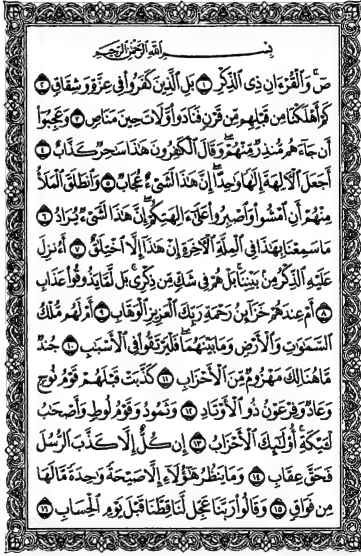 بِسْمِ اللَّهِ الرَّحْمَٰنِ الرَّحِيمِ
صٓ ۚ وَالْقُرْءَانِ ذِي الذِّكْرِ ١ بَلِ الَّذِينَ كَفَرُوا فِي عِزَّةٍ وَشِقَاقٍ ٢
كَمْ أَهْلَكْنَا مِن قَبْلِهِم مِّن قَرْنٍ فَنَادَوا وَّلَاتَ حِينَ مَنَاصٍ ٣ وَعَجِبُوٓا
أَن جَآءَهُم مُّنذِرٌ مِّنْهُمْ ۖ وَقَالَ الْكَٰفِرُونَ هَٰذَا سَٰحِرٌ كَذَّابٌ ٤
أَجَعَلَ الْءَالِهَةَ إِلَٰهًا وَٰحِدًا ۖ إِنَّ هَٰذَا لَشَيْءٌ عُجَابٌ ٥ وَانطَلَقَ الْمَلَأُ
مِنْهُمْ أَنِ امْشُوا وَاصْبِرُوا عَلَىٰٓ ءَالِهَتِكُمْ ۖ إِنَّ هَٰذَا لَشَيْءٌ يُرَادُ ٦
مَا سَمِعْنَا بِهَٰذَا فِي الْمِلَّةِ الْءَاخِرَةِ إِنْ هَٰذَآ إِلَّا اخْتِلَٰقٌ ٧ أَءُنزِلَ
عَلَيْهِ الذِّكْرُ مِن بَيْنِنَا ۚ بَلْ هُمْ فِي شَكٍّ مِّن ذِكْرِي ۖ بَل لَّمَّا يَذُوقُوا عَذَابِ
٨ أَمْ عِندَهُمْ خَزَآئِنُ رَحْمَةِ رَبِّكَ الْعَزِيزِ الْوَهَّابِ ٩ أَمْ لَهُم مُّلْكُ
السَّمَٰوَٰتِ وَالْأَرْضِ وَمَا بَيْنَهُمَا ۖ فَلْيَرْتَقُوا فِي الْأَسْبَٰبِ ١٠ جُندٌ
مَّا هُنَالِكَ مَهْزُومٌ مِّنَ الْأَحْزَابِ ١١ كَذَّبَتْ قَبْلَهُمْ قَوْمُ نُوحٍ
وَعَادٌ وَفِرْعَوْنُ ذُو الْأَوْتَادِ ١٢ وَثَمُودُ وَقَوْمُ لُوطٍ وَأَصْحَٰبُ
لْـَٔيْكَةِ ۚ أُولَٰٓئِكَ الْأَحْزَابُ ١٣ إِن كُلٌّ إِلَّا كَذَّبَ الرُّسُلَ
فَحَقَّ عِقَابِ ١٤ وَمَا يَنظُرُ هَٰٓؤُلَآءِ إِلَّا صَيْحَةً وَٰحِدَةً مَّا لَهَا
مِن فَوَاقٍ ١٥ وَقَالُوا رَبَّنَا عَجِّل لَّنَا قِطَّنَا قَبْلَ يَوْمِ الْحِسَابِ ١٦